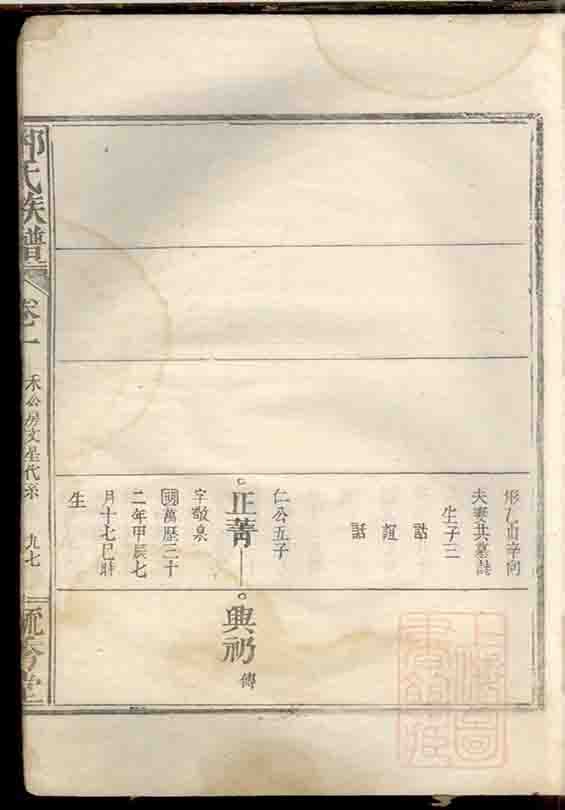 形乙山辛向
夫妻共墓誌
生子三
誼
話
仁公五子
正菁
字敬泉
明萬歷三十
二年甲辰七
月十七巳時
生
興礽
傳
氏族譜
卷一
禾公房文星代系
九七